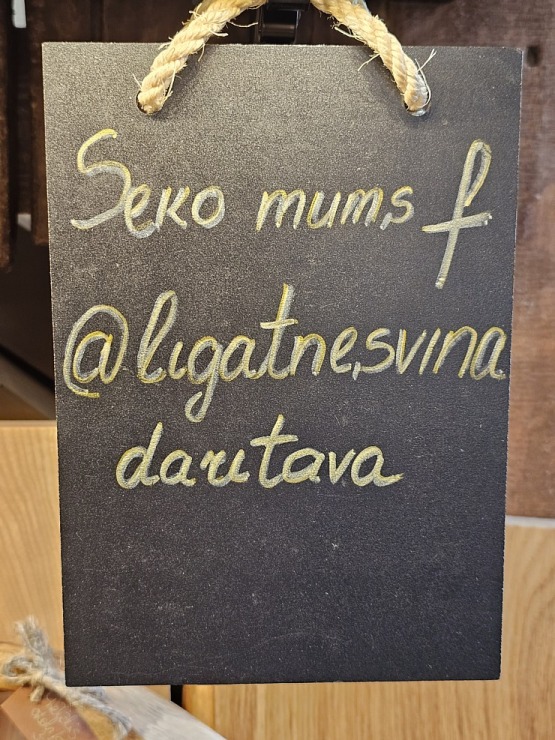 Seko mums f
@ligatnesvina
daritava